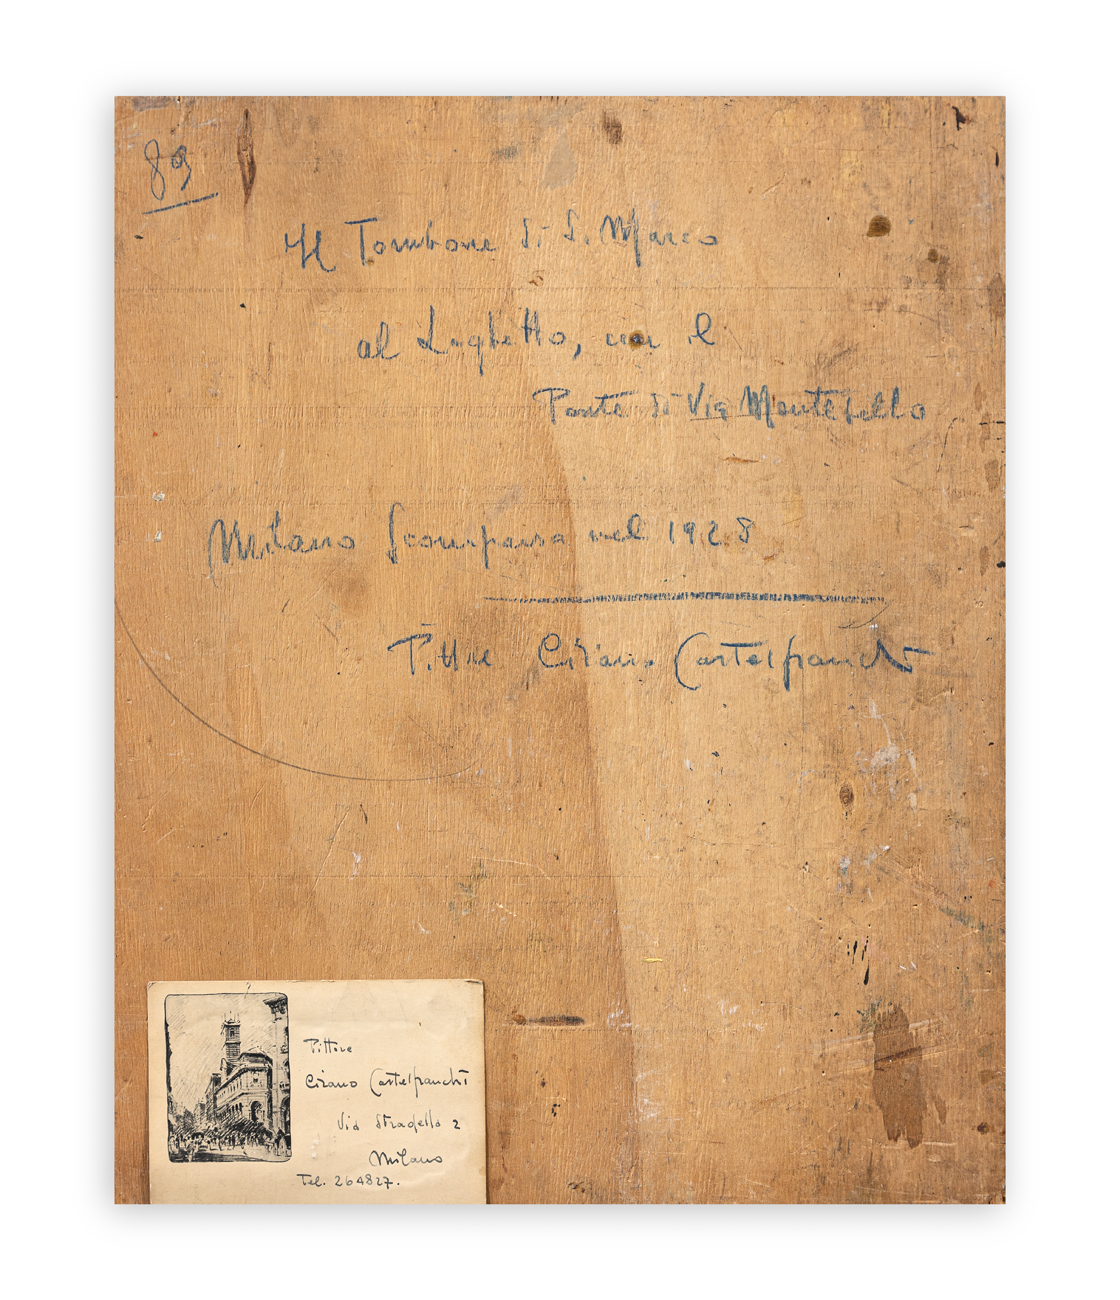 89
Il Tombone di S. Marco
al Laghetto, con il
Ponte di Via Montebello
Milano Scomparsa nel 1928
Pittore Cirano Castelfranchi
Pittore
Cirano Castelfranchi
Via Stradella 2
Milano
Tel. 264827.